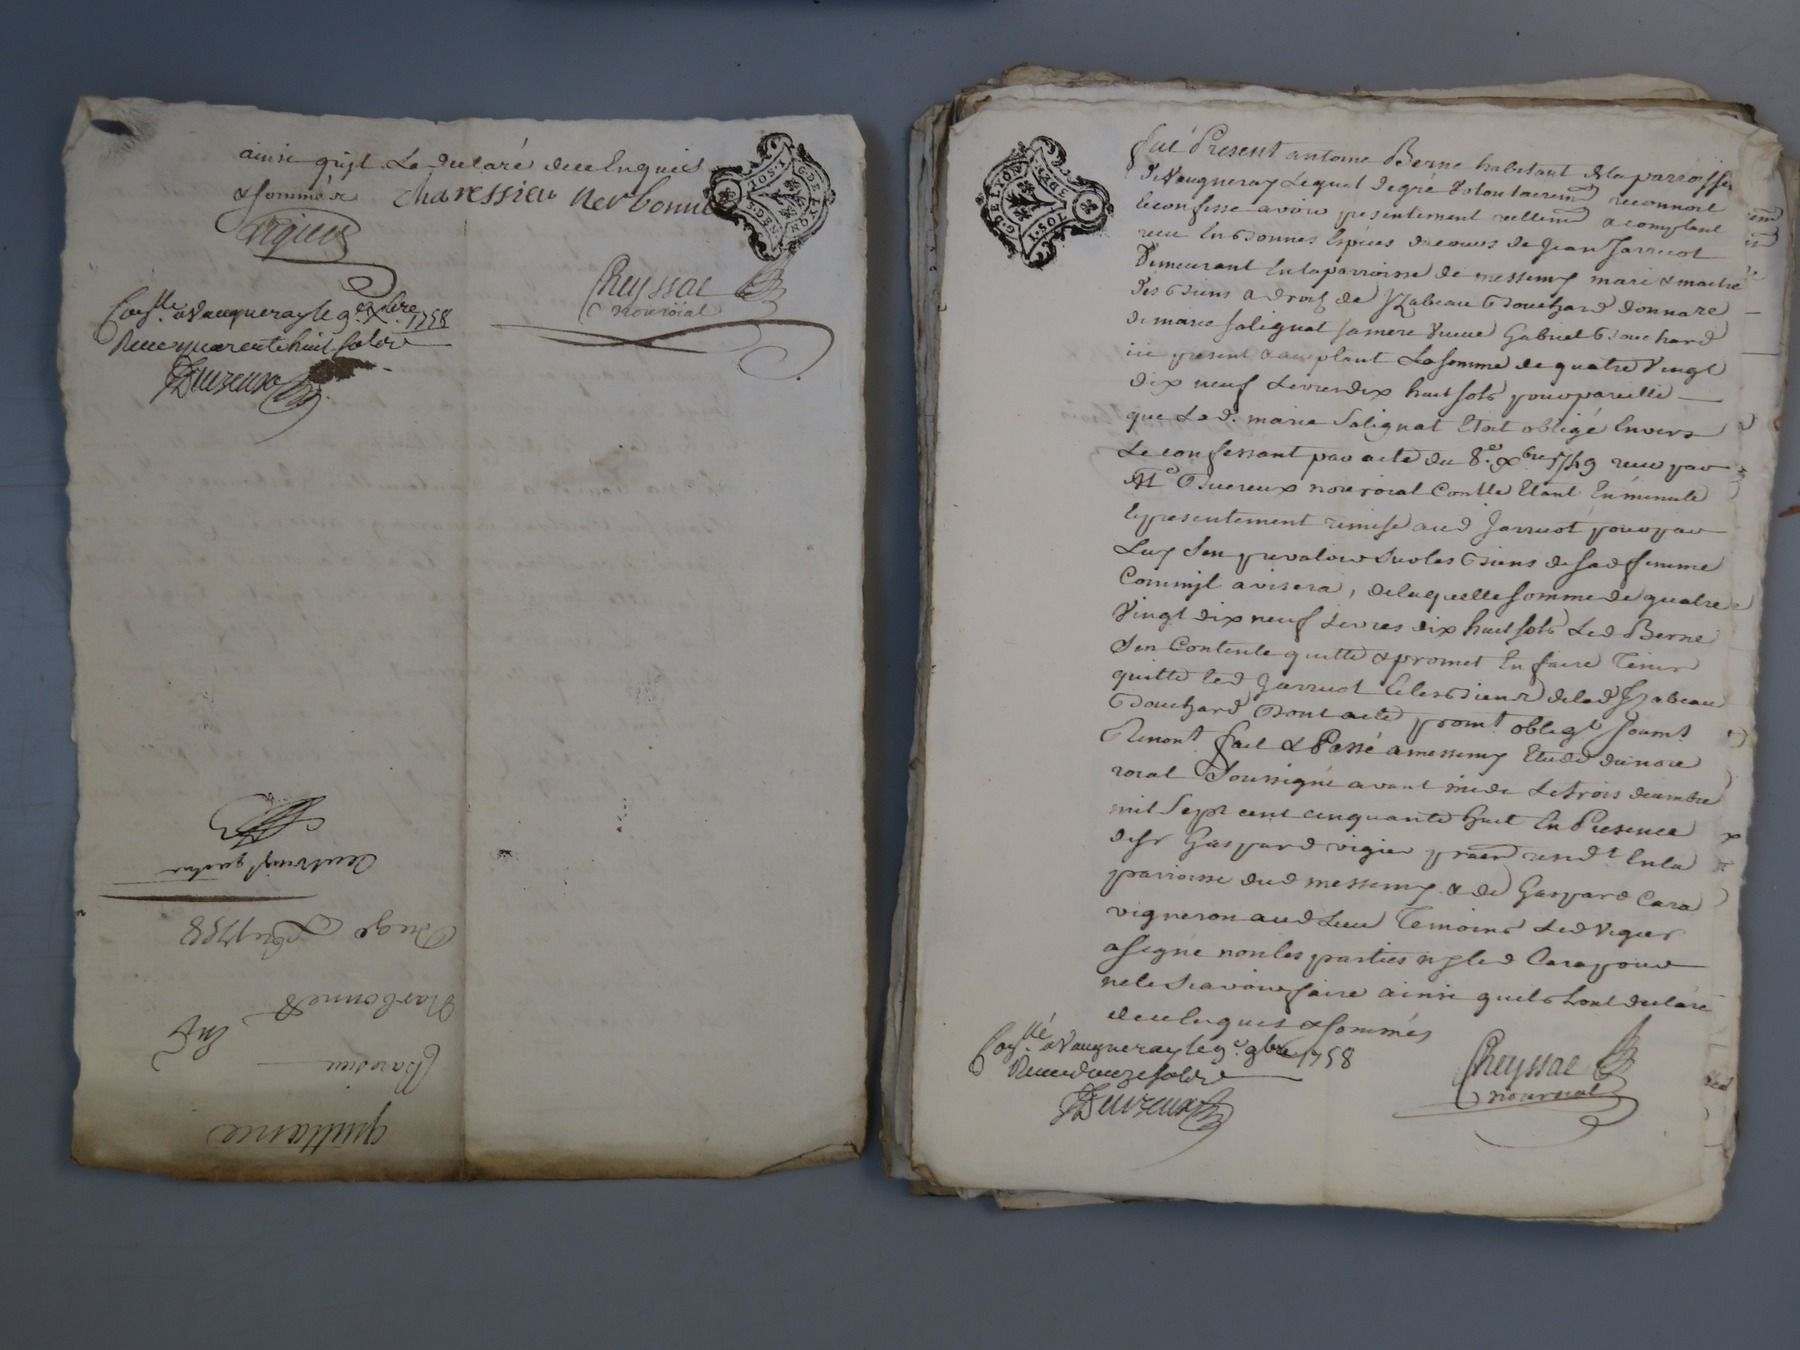 ainsi qu'jl Le declaré de ce Enquis
& sommé
charessieu Nerbonne
vigier
G·DE LYON
1·SOL
Cheyssac
no.re roial
Con.llé a Vaugneray le 9.e Xbre 1758
Receu quarente huit sols
Duvreux
quittance
Charesieu
Ent
Narbonne
Du 9e Xbre 1758
G·DE LYON
1·SOL
fut Present antoine Berne habitant de la parroisse
de Vaugneray Lequel de gré & volontairem.t reconnoit
& confesse avoir presentement reellem.t & comptant
receu En bonnes Espèces de cours de Jean Jarricot
demeurant En la parroisse de messemy mari & maitre
des biens & droits de Jzabeau Bouchard donnaᵗʳᵉ
de marie Salignat sa mere veuve Gabriel Bouchard
icy present & acceptant La somme de quatre Vingt
dix neuf Livres dix huit sols pour pareille
que La d. marie Salignat Etoit obligé Envers
Le confessant par acte du 8.e Xbre 1749 receu par
M.e Duvreux no.re roial Con.llé Etant En minute
& presentement remise aud Jarricot pour par
Luy S'en prevaloir sur les biens de sad femme
Comm'jl avisera, de laquelle somme de quatre
Vingt dix neuf Livres dix huit sols Led Berne
S'en Contente quitte & promet En faire Tenir
quitte led Jarricot & les biens de lad Jzabeau
Bouchard Dont acte prom.t oblig.t soum.t
Renon.t fait & Passé a messemy Etude du no.re
roial Soussigné avant midi Le trois decembre
mil Sept cent cinquante huit En Presence
de Sr Gaspard vigier praen resid.t En la
parroisse dud messemy & de Gaspard Cara
vigneron aud Lieu Temoins Led Vigier
a signé non les parties ny led Cara pour
ne le Scavoir faire ainsi qu'ils L'ont declaré
de ce Enquis & sommés
Con.llé a Vaugneray le 9.e Xbre 1758
Receu douze sols
Duvreux
Cheyssac
no.re roial